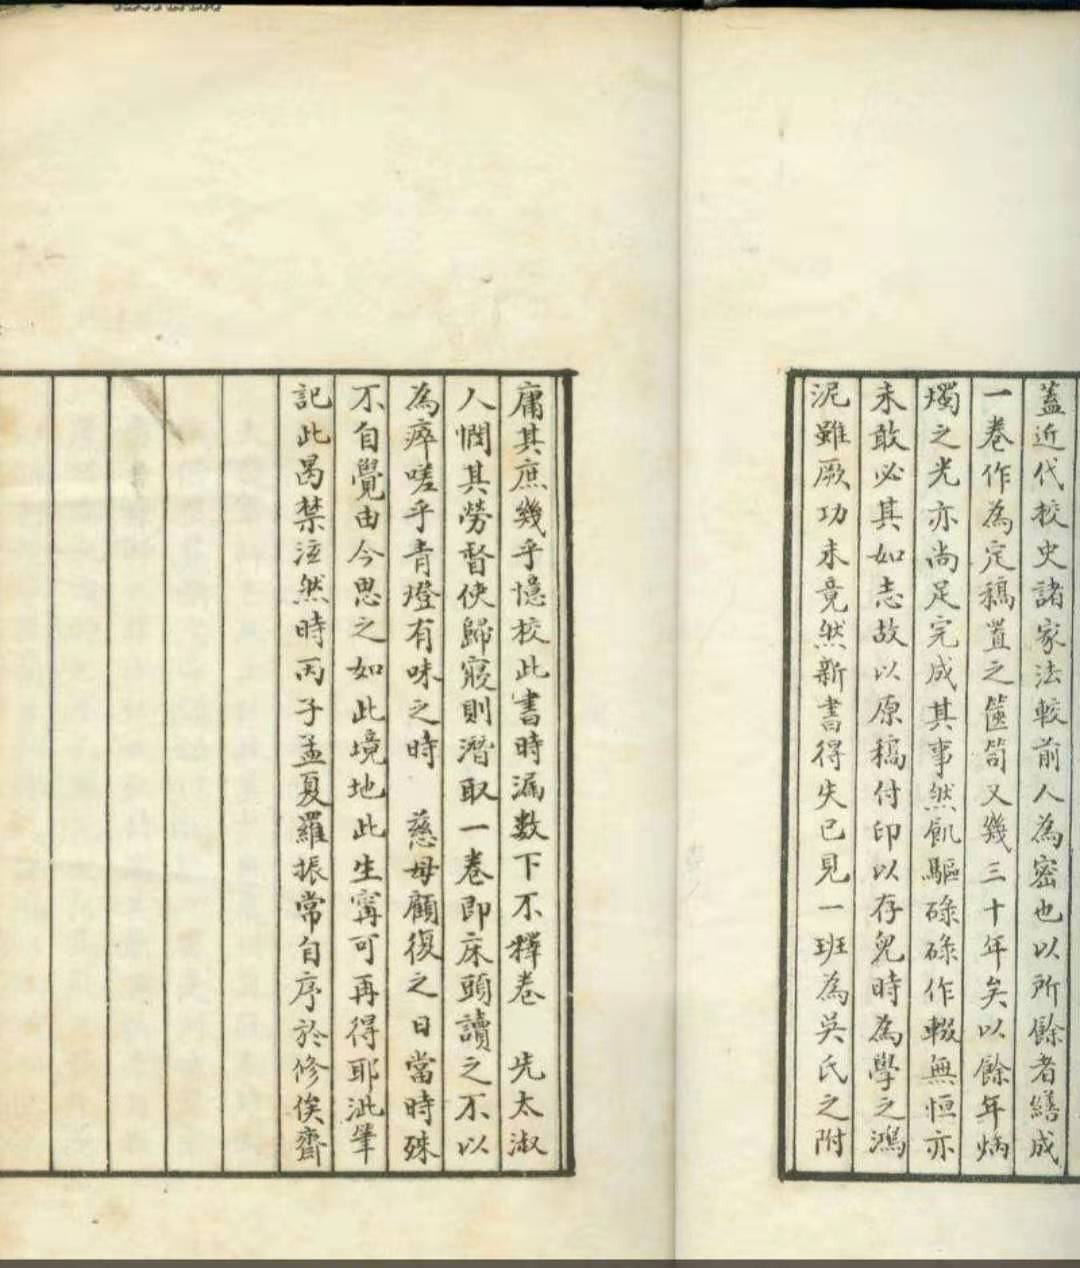 蓋近代校史諸家法較前人為密也以所餘者繕成
一卷作為定稿置之篋笥又幾三十年矣以餘年炳
燭之光亦尚足完成其事然飢驅碌碌作輟無恒亦
未敢必其如志故以原稿付印以存兒時為學之鴻
泥雖厥功未竟然新書得失已見一班為吳氏之附
庸其庶幾乎憶校此書時漏數下不釋卷　先太淑
人憫其勞督使歸寢則潛取一卷即床頭讀之不以
為瘁嗟乎青燈有味之時　慈母顧復之日當時殊
不自覺由今思之如此境地此生寧可再得耶泚筆
記此曷禁泫然時丙子孟夏羅振常自序於修俟齋